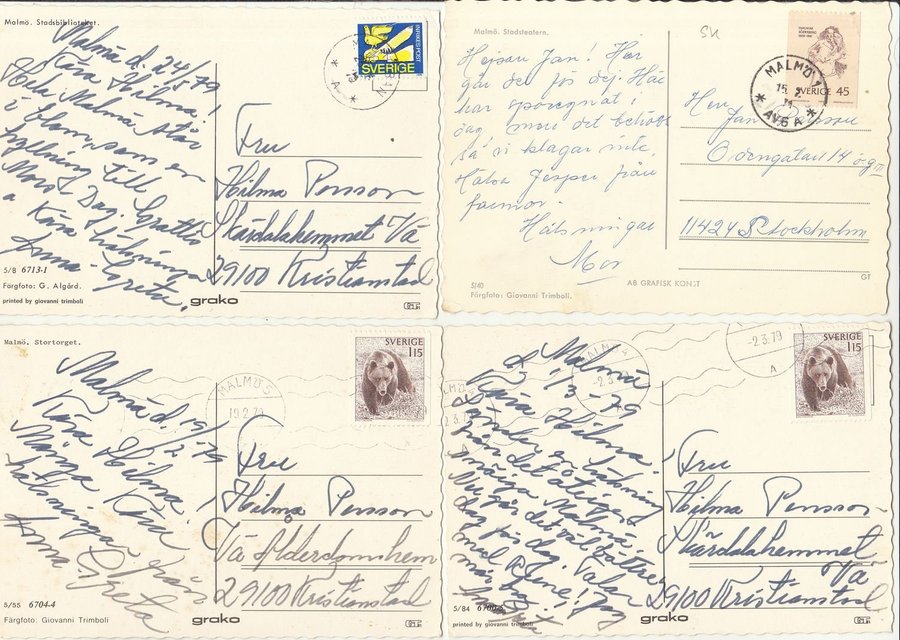 Malmö. Stadsbiblioteket.
Malmö d. 24/5 79
Kära Hilma!
Hela Malmö står
i blom, som en
hyllning till
Mors Dag. Grattis
o Kära hälsningar
Anna-Greta.
INRIKESPOST
SVERIGE
Fru
Hilma Persson
Skärdalahemmet Vä
29100 Kristianstad
5/8 6713-1
Färgfoto: G. Algård.
printed by giovanni trimboli
grako
Malmö. Stadsteatern.
SK
Hejsan Jan! Hur
går det för dej. Här
har spöregnat i
dag, men det behövs
så vi klagar inte.
Hälsa Jesper från
farmor.
Hälsningar
Mor
SVERIGE 45
MALMÖ 1
15. 7.
AVGA
Herr
Jan
Odengatan 14 ö.g. III
11424 Stockholm
5/40
Färgfoto: Giovanni Trimboli.
AB GRAFISK KONST
GT
Malmö. Stortorget.
Malmö d. 19/2 79
Kära Hilma!
Många Kära
hälsningar från
Anna Greta
MALMÖ 5
19.2.79
SVERIGE
115
Fru
Hilma Persson
Vä Ålderdomshem
29100 Kristianstad
5/55 6704-4
Färgfoto: Giovanni Trimboli
grako
Malmö
d. 1/3 -79
Kära Hilma.
Sänder en hälsning
från det återigen
snöiga Malmö.
Nu går det väl bättre
dag för dag.
MALMÖ
-2.3.79
-2.3.79
A
SVERIGE
115
Fru
Hilma Persson
Skärdalahemmet
Vä
29100 Kristianstad
5/84
printed by giovanni trimboli
grako